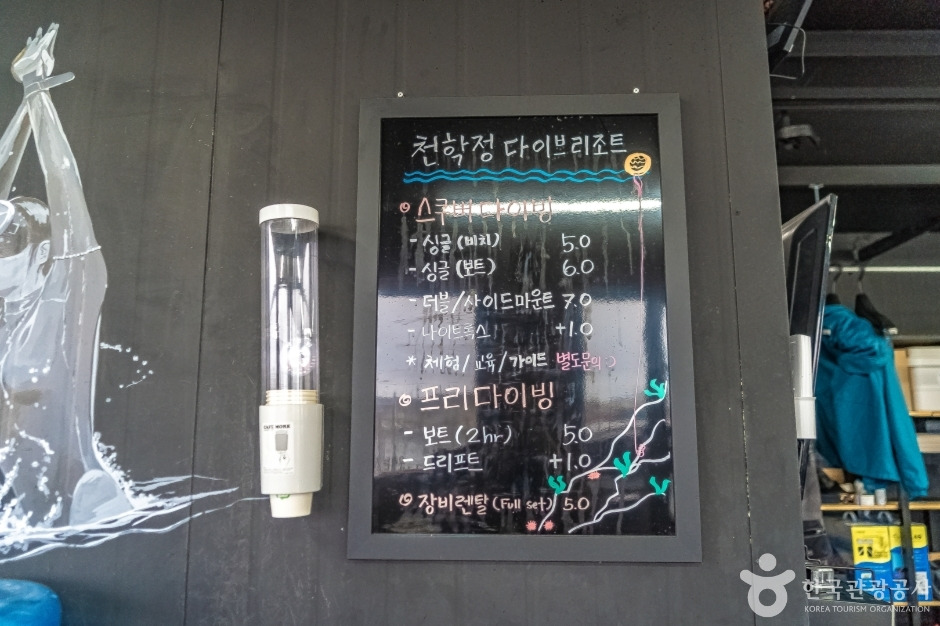 천학정 다이브리조트
스쿠버다이빙
- 싱글(비치) 5.0
- 싱글(보트) 6.0
- 더블/사이드마운트 7.0
- 나이트록스 +1.0
* 체험/교육/가이드 별도문의
프리다이빙
- 보트(2hr) 5.0
- 드리프트 +1.0
장비렌탈(Full set) 5.0
한국관광공사
KOREA TOURISM ORGANIZATION